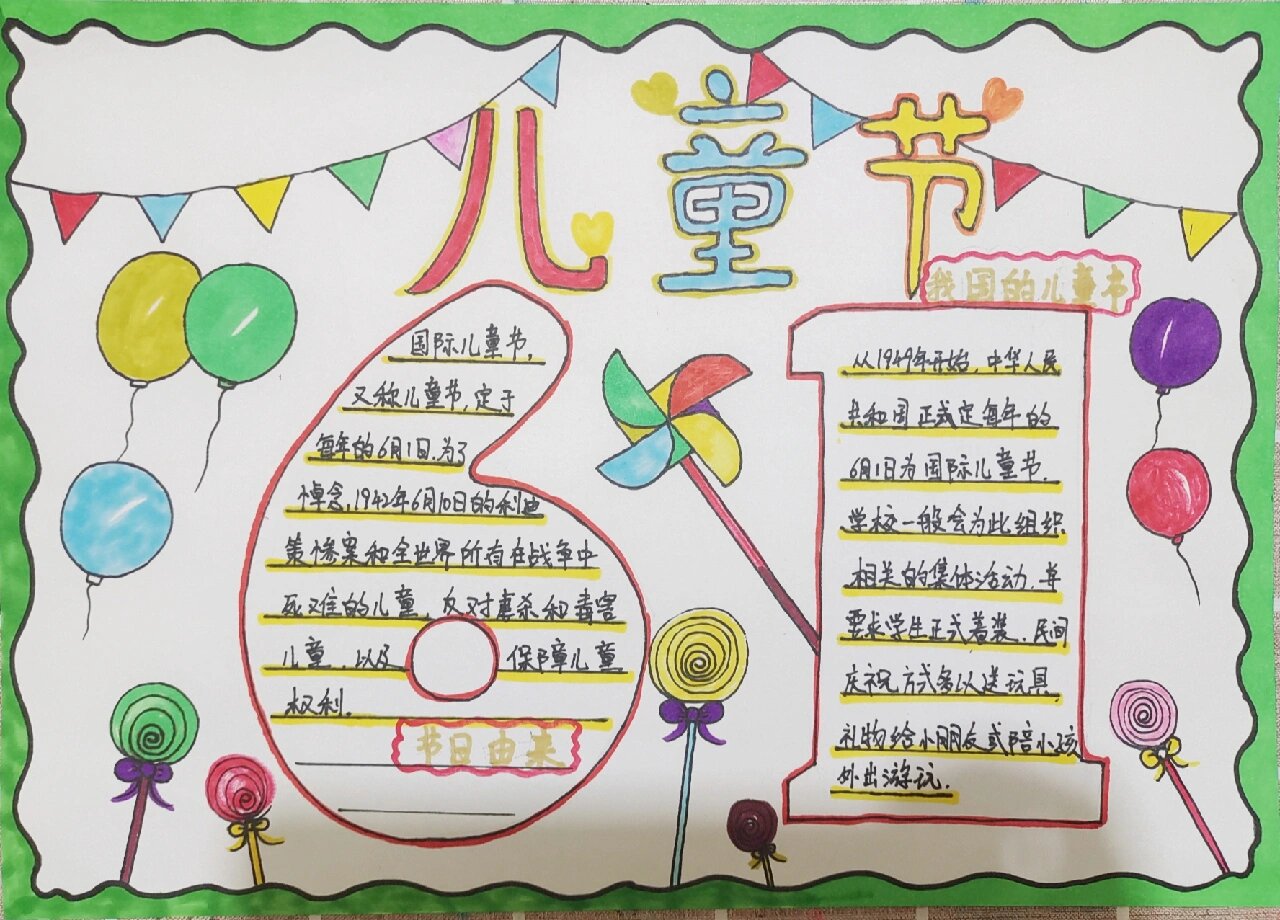 儿童节
国际儿童节,
又称儿童节,定于
每年的6月1日.为了
悼念,1942年6月10日的利迪
策惨案和全世界所有在战争中
死难的儿童,反对虐杀和毒害
儿童,以及保障儿童
权利。
节日由来
我国的儿童节
从1949年开始,中华人民
共和国正式定每年的
6月1日为国际儿童节.
学校一般会为此组织
相关的集体活动.并
要求学生正式着装.民间
庆祝方式多以送玩具
礼物给小朋友或陪小孩
外出游玩.